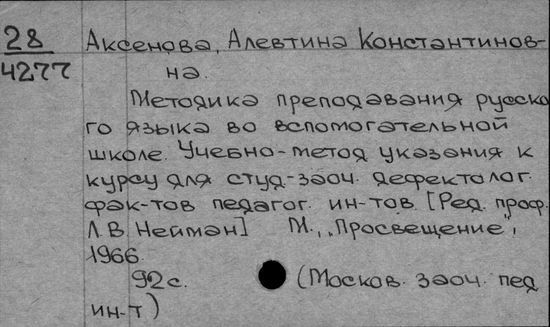 28 Аксенова, Алевтина Константинов-
4277 на.
Методика преподавания русско
го языка во вспомогательной
школе. Учебно-метод указания к
курсу для студ-заоч. дефектолог.
фак-тов педагог. ин-тов. [Ред. проф.
Л.В. Нейман] М., "Просвещение",
1966.
92 с. (Москов. заоч. пед
ин-т)